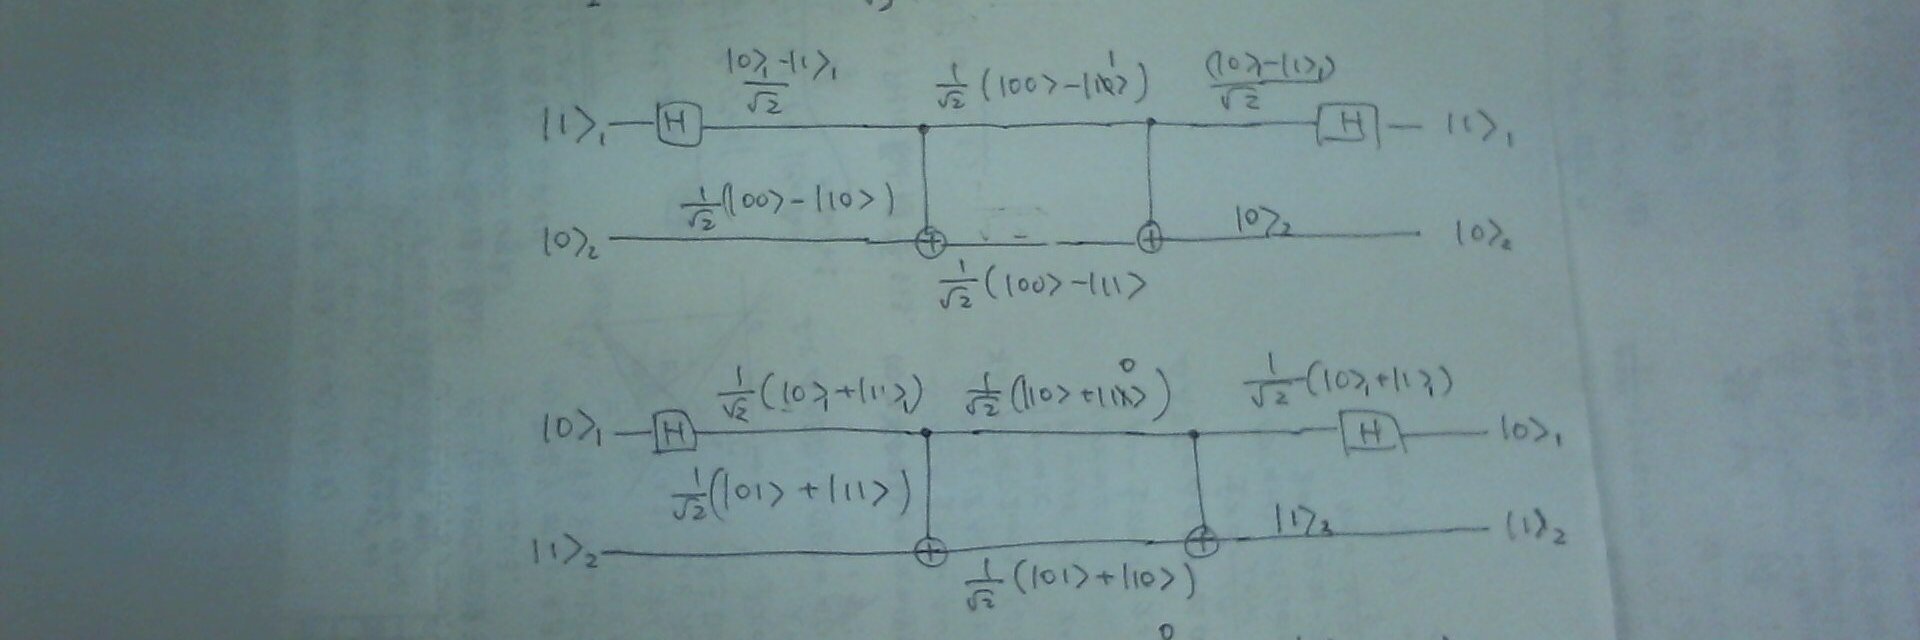 |0⟩₁-|1⟩₁/√2 1/√2(|00⟩-|11⟩) (|0⟩₁-|1⟩₁)/√2
|1⟩₁ H H |1⟩₁
1/√2(|00⟩-|10⟩)
|0⟩₂ |0⟩₂ |0⟩₂
1/√2(|00⟩-|11⟩
1/√2(|0⟩₁+|1⟩₁) 1/√2(|10⟩+|10⟩) 1/√2(|0⟩₁+|1⟩₁)
|0⟩₁ H H |0⟩₁
1/√2(|01⟩+|11⟩)
|1⟩₂ |1⟩₂ |1⟩₂
1/√2(|01⟩+|10⟩)